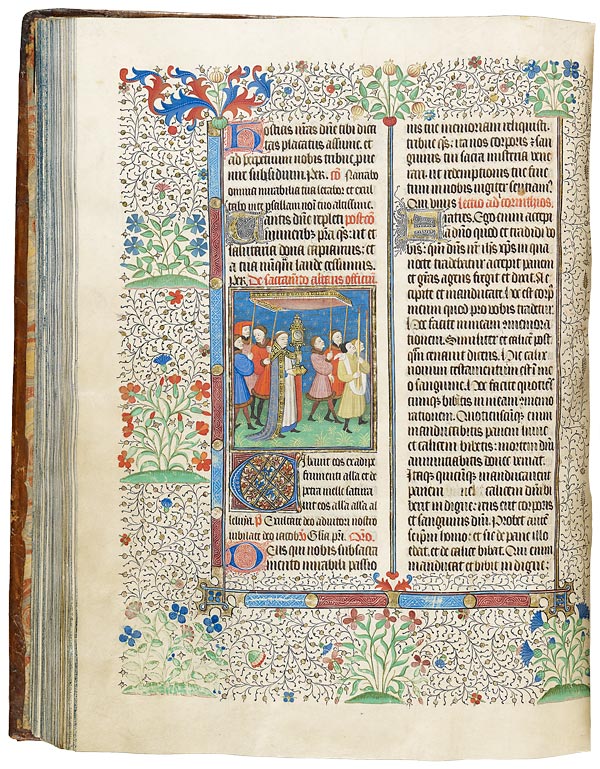 Hostias n̄ras dn̄e tibi dica
tas placatus assume. et
ad perpetuum nobis tribue pue
nire subsidium. Per. cō Narrabo
omnia mirabilia tua letabor et exul
tabo in te psallam nomini tuo altissime.
Sanctis dn̄e repleti postcō
muneribs p̄ra qs̄. ut et
salutaria dona capiamus: et
a tua nūqm̄ laude cessemus.
Per. De sacramēto altaris officiū.
Cibauit eos ex adipe
frumenti alla et de
petra melle satura
uit eos alla alla al
leluia. p̄ Exultate deo adiutori nostro
iubilate deo iacob. Glīa pr̄i. Oro.
Deus qui nobis sub sacra
mento mirabili passio
nis tue memoriam reliquisti:
tribue qs̄. ita nos corporis et san
guinis tui sacra misteria vene
rari. ut redemptionis tue fruc
tum in nobis iugiter sentiam9.
Qui viuis lectio ad corinthios.
Fratres. Ego enim accepi
a dn̄o quod et tradidi vo
bis: qm̄ dn̄s nr̄ ih̄s xp̄s in qua
nocte tradebatur accepit panem
et grās agens fregit et dixit. Ac
cipite et manducate. hoc est corp9
meum quod pro vobis tradetur.
hoc facite in meam cōmemora
tionem. Similiter et calicē post
qm̄ cenauit dicens. Hic calix
nouum testamentum est in me
o sanguine. hoc facite quotiēs
cumqs bibetis in meam cōmemo
rationem. Quotienscumqs enim
manducabitis panem hunc
et calicem bibetis: mortem dn̄i
annunciabitis donec veniat.
Itaqs quicumqs manducauerit
panem calicem dn̄i bi
berit indigne: reus erit corporis
et sanguinis dn̄i. Probet autē
seip̄m homo: et sic de pane illo
edat. et de calice bibat. Qui enim
manducat et bibit indigne: